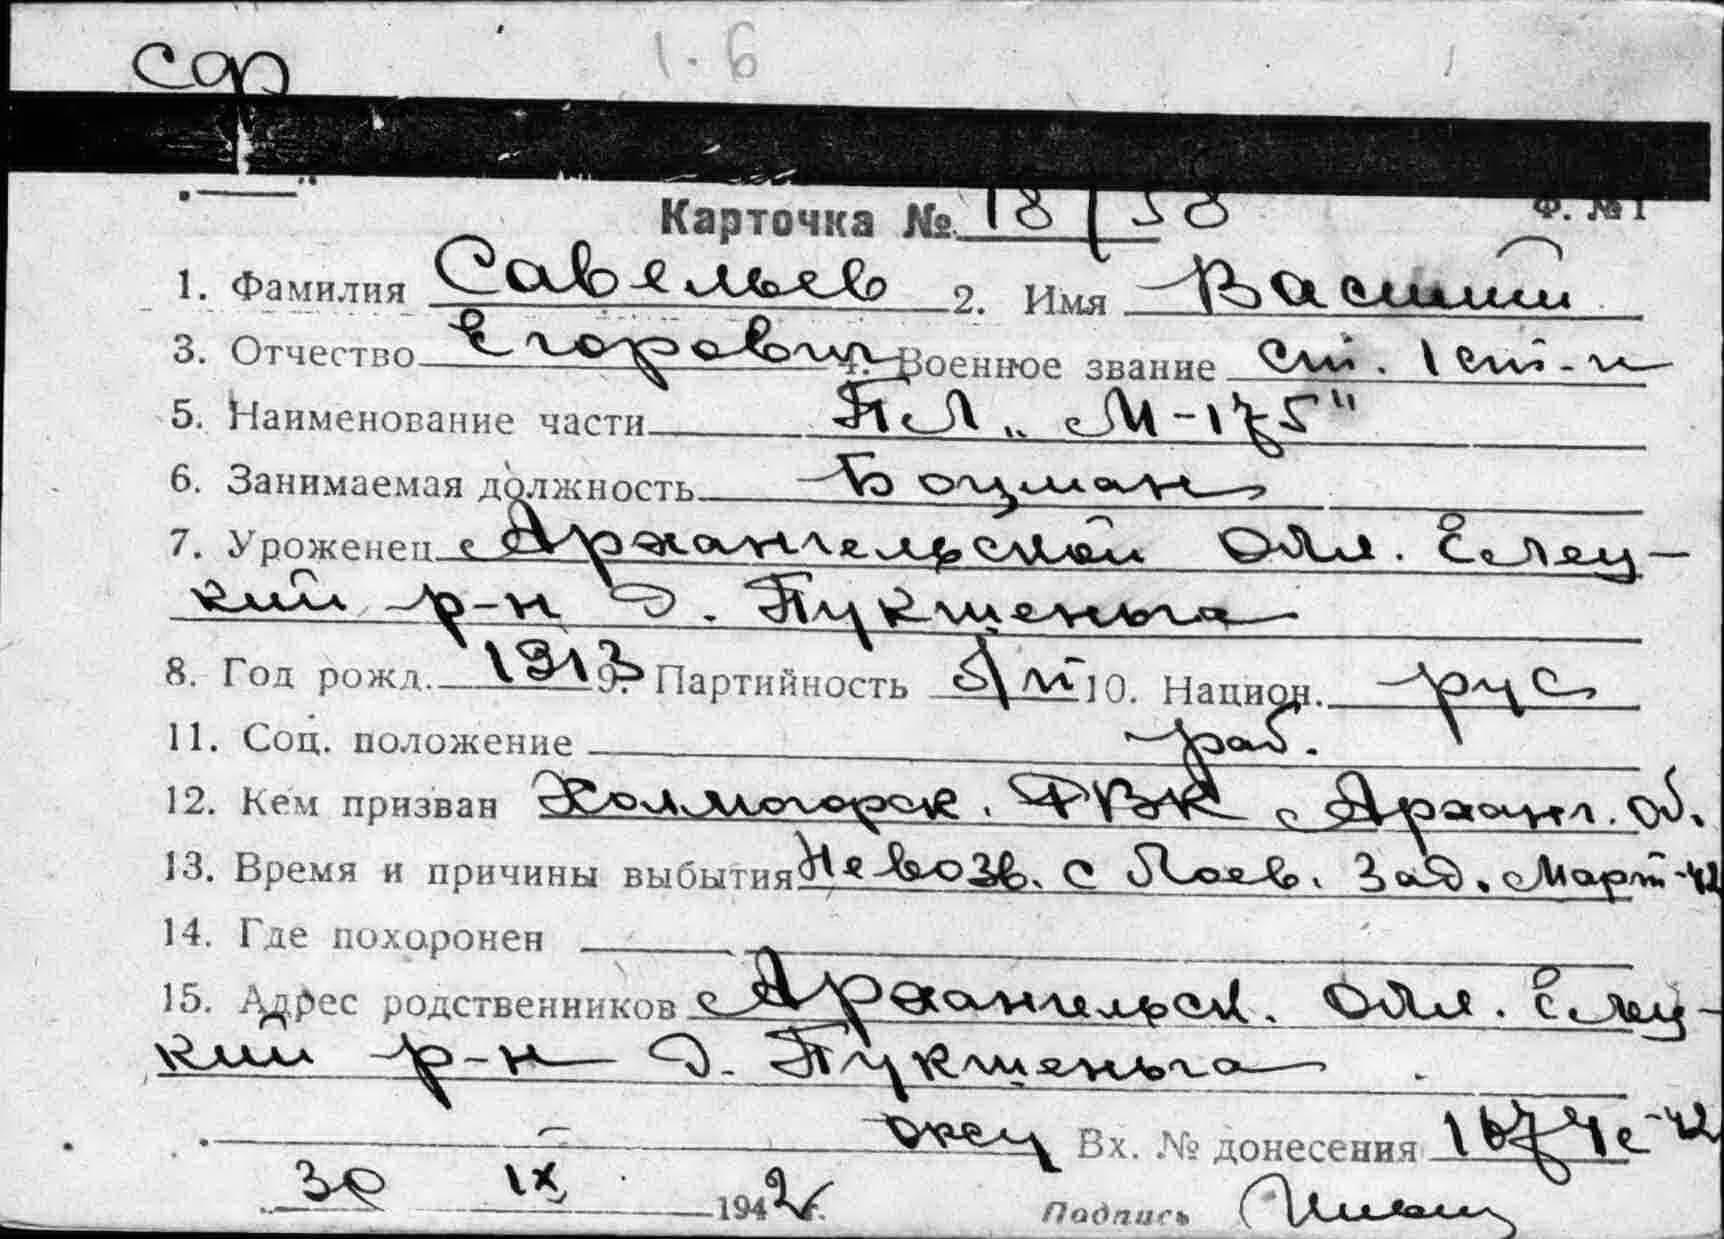 сф
1. 6
Ф. № 1
Карточка № 18/58
1. Фамилия Савельев 2. Имя Василий
3. Отчество Егорович 4. Военное звание ст. 1 ст-и
5. Наименование части ПЛ "М-175"
6. Занимаемая должность Боцман
7. Уроженец Архангельской обл. Елец-
кий р-н д. Пукшеньга
8. Год рожд. 1913 9. Партийность б/п 10. Национ. рус
11. Соц. положение раб.
12. Кем призван Холмогорск. РВК Арханг. об.
13. Время и причины выбытия Невозв. с боев. зад. март-42
14. Где похоронен
15. Адрес родственников Архангельск. обл. Елец-
кий р-н д. Пукшеньга
Вх. № донесения 1674с-42
30 IX 1942 г. Подпись